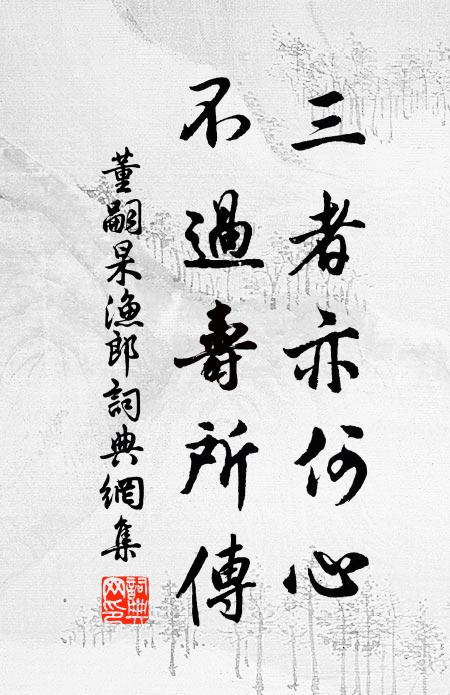 三者亦何心
不過壽所傳
董嗣杲漁郎詞典網集
詞典網印